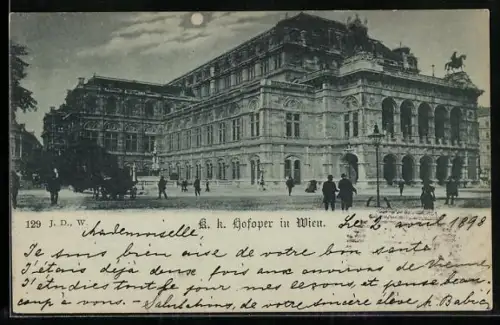 129 J. D., W.
K. k. Hofoper in Wien.
Le 2 août 1898
Mademoiselle,
Je suis bien aise de votre bon santé
J'étais déjà deux fois aux environs de Vienne,
J'étudies tout le jour mes lesons, et pense beau-
coup à vous. - Salutations, de votre sincère élève A. Babić